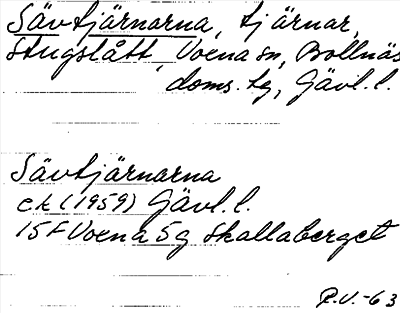 Sävtjärnarna, tjärnar,
Stugslått, Voxna sn, Bollnäs
doms. tg, Gävl. l.
Sävtjärnarna
ek (1959) Gävl. l.
15F Voxna 5g Skallaberget
R.V.-63